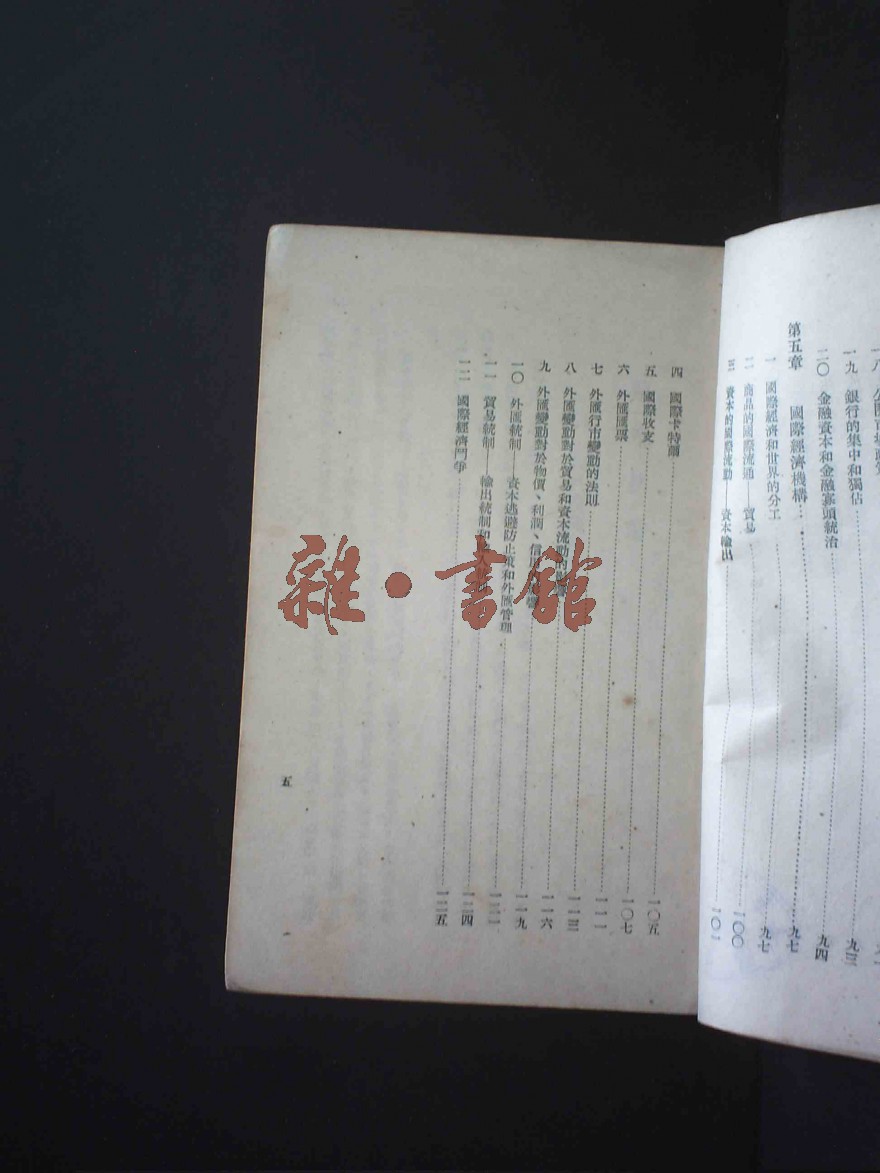 一九 銀行的集中和獨佔……九三
二〇 金融資本和金融寡頭統治……九四
第五章 國際經濟機構……九七
一 國際經濟和世界的分工……九七
二 商品的國際流通——貿易……一〇〇
三 資本的國際流動——資本輸出……一〇一
四 國際卡特爾……一〇五
五 國際收支……一〇七
六 外匯匯票……一一一
七 外匯行市變動的法則……一一三
八 外匯變動對於貿易和資本流動的……一一六
九 外匯變動對於物價、利潤、信……一一九
一〇 外匯統制——資本逃避防止策和外匯管理……一二一
一一 貿易統制——輸出統制和……一二四
一二 國際經濟鬥爭……一二五
五
雜·書館